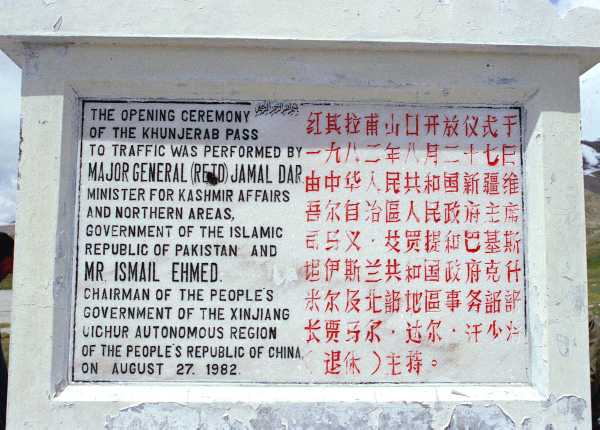 THE OPENING CEREMONY
OF THE KHUNJERAB PASS
TO TRAFFIC WAS PERFORMED BY
MAJOR GENERAL (RETD) JAMAL DAR
MINISTER FOR KASHMIR AFFAIRS
AND NORTHERN AREAS,
GOVERNMENT OF THE ISLAMIC
REPUBLIC OF PAKISTAN AND
MR. ISMAIL EHMED.
CHAIRMAN OF THE PEOPLE'S
GOVERNMENT OF THE XINJIANG
UICHUR AUTONOMOUS REGION
OF THE PEOPLE'S REPUBLIC OF CHINA
ON AUGUST 27. 1982.
红其拉甫山口开放仪式于
一九八二年八月二十七日
由中华人民共和国新疆维
吾尔自治區人民政府主席
司马义·歧贾提和巴基斯
坦伊斯兰共和国政府克什
米尔及北部地區事务部
长贾马尔·达尔·汗少
（退休）主持。